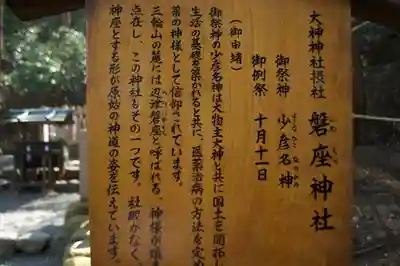 大神神社摂社
磐座神社
いわくら
御祭神 少彦名神
すくなひこなのかみ
御例祭 十月十一日
(御由緒)
御祭神の少彦名神は大物主大神と共に国土を開拓し
生活の基礎を築かれると共に、医薬治病の方法を定め
薬の神様として信仰されています。
三輪山の麓には辺津磐座と呼ばれる、神様が鎮ま
点在し、この神社もその一つです。社殿がなく、
神座とする形が原始の神道の姿を伝えています。